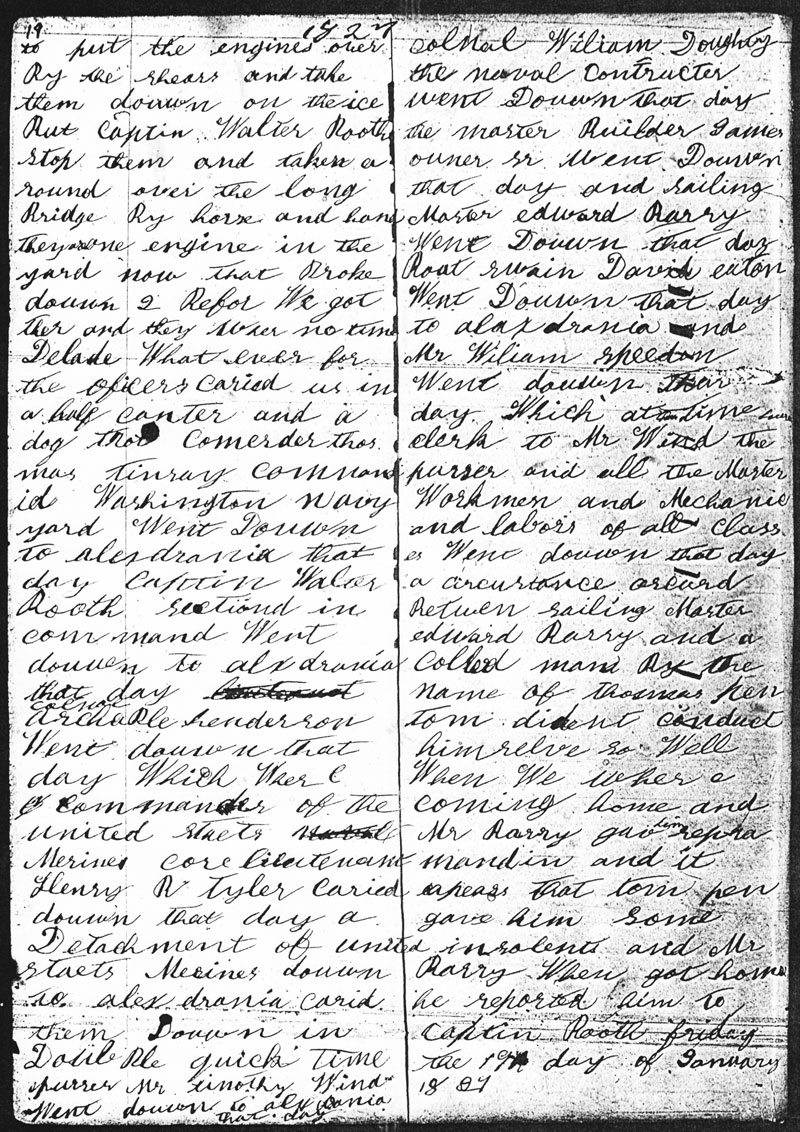 19
1827
to put the engines over
By the shears and take
them douwn on the ice
But Captin Walter Booth
stop them and taken a
round over the long
Bridge By horse and hand
they one engine in the
yard now that Broke
douwn 2 Befor We got
ther and they wher no time
Delade What ever for
the oficers caried us in
a half canter and a
dog Comerder thos
mas tinsay command
id Washington navy
yard Went Douwn
to alexdrania that
day Captin Walter
Booth sectiond in
command Went
douwen to alxdrania
that day lieutenant
colnal
archaBle henderson
Went douwn that
day Which Wher C
commander of the
united staets
Merines core lieutenant
Henry B Tyler Caried
douwn that day a
Detachment of united
staets Merines douwn
to alex drania carid
them Douwn in
DoubBle quick time
purser Mr timothy Wind
Went douwn to alxdrania
that day
colnal Wiliam Doughty
the naval Contracter
went Douwn that day
the master Builder James
owner sr Went Douwn
that day and sailing
Master edward Barry
Went Douwn that day
Boat swain David eaton
Went Douwn that day
to alaxdrania and
Mr Wiliam speedon
Went douwn that
day Which at time
clerk to Mr Wind the
purser and all the Master
Workmen and Mechanic
and labors of all Class
es Went douwn that day
a circurstance accurd
Betwen sailing Master
edward Barry and a
Colled mani By the
name of thomas pen
tom dident conduct
himselve so Well
When We wher e
coming home and
Mr Barry gav tom repra
mandin and it
apears that tom pen
gave him some
insolents and Mr
Barry When got home
he reported him to
Captin Booth friday
the 19th day of January
18 27